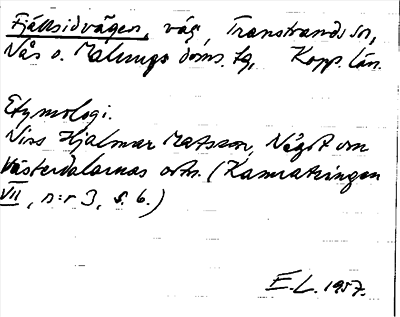 Fjällsidvägen, väg, Transtrands sn,
Nås o. Malungs doms. tg, Kopp. län.
Etymologi.
Niss Hjalmar Matsson, Något om
Västerdalarnas ortn. (Kamratringen
VII, n:r 3, s. 6.)
E.L. 1957.